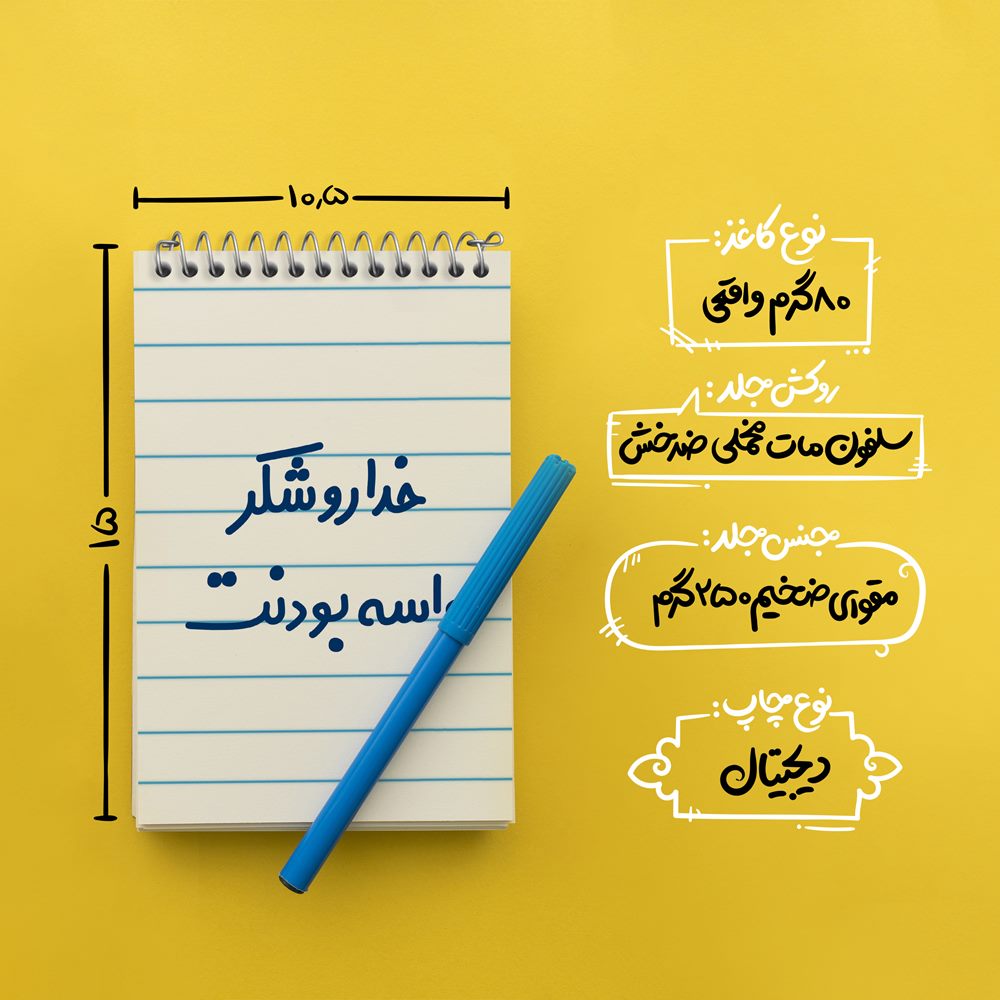 ۱۰٫۵
۱۵
خدارو شکر
واسه بودنت
نوع کاغذ:
۸۰ گرم واقعی
روکش جلد:
سلفون مات مخملی ضدخش
جنس جلد:
مقوای ضخیم ۲۵۰ گرم
نوع چاپ:
دیجیتال